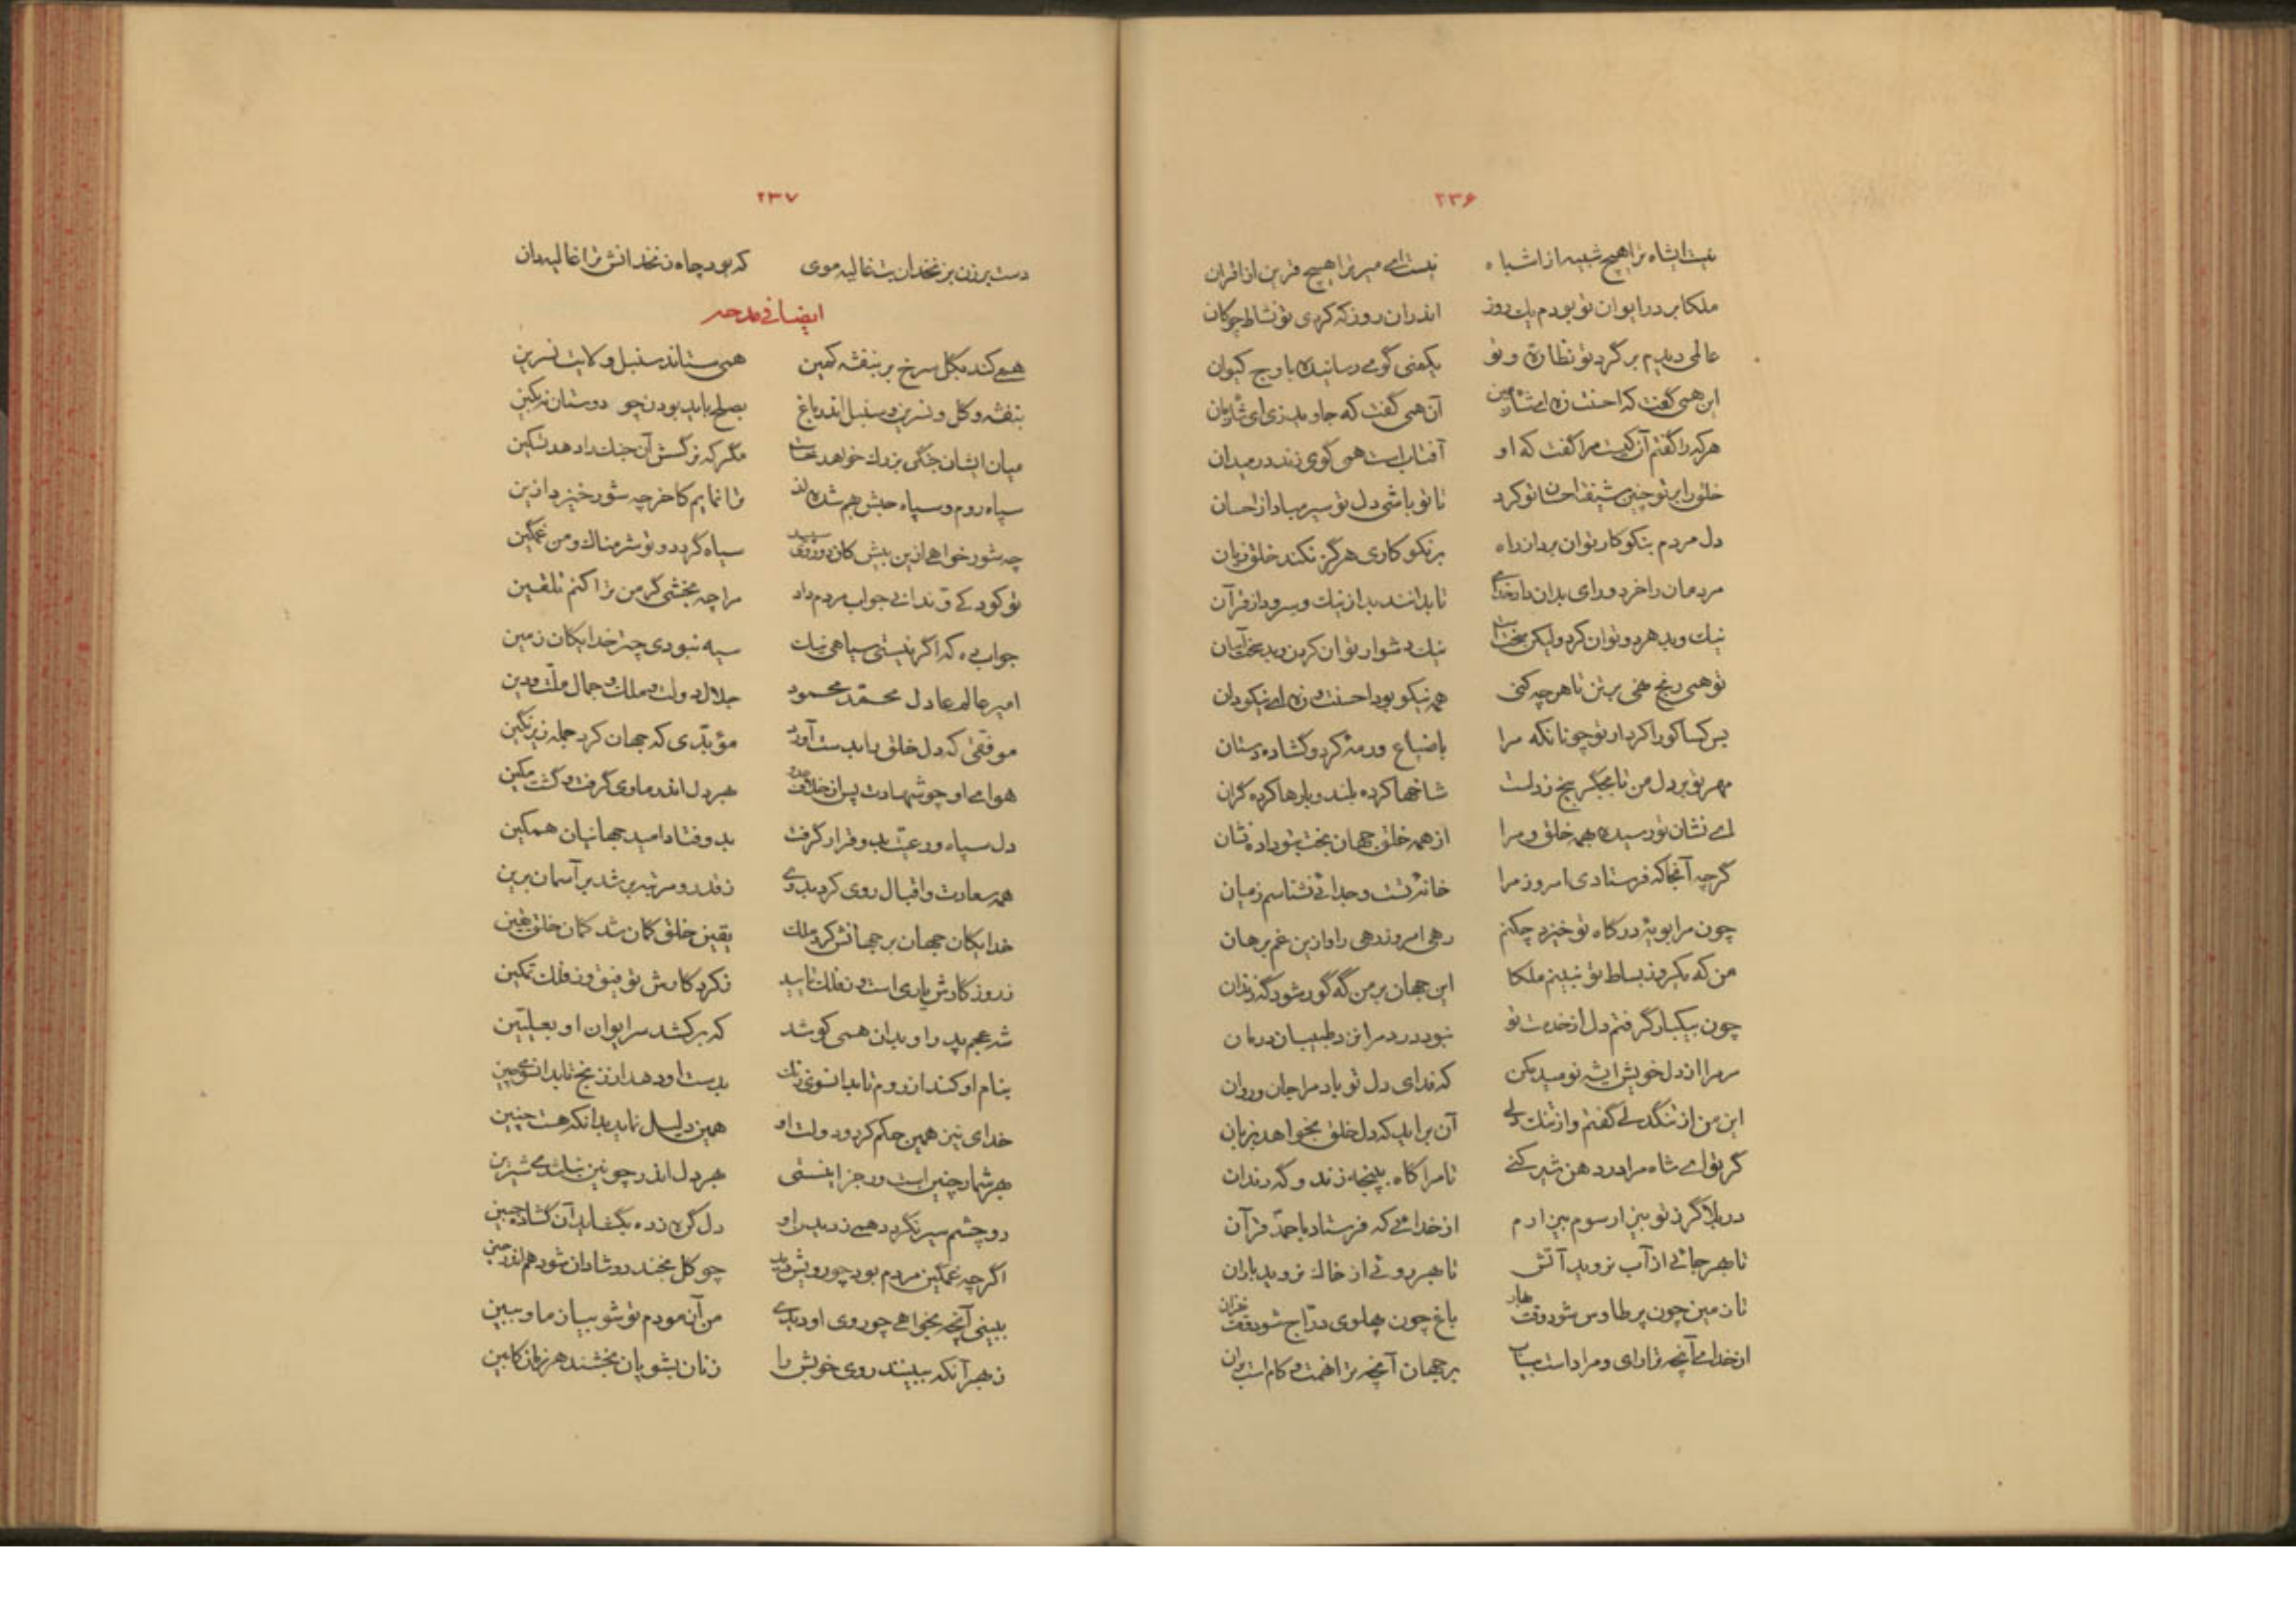 ۲۳۶
نیست ایشاه ترا هیچ شبیه از اشباه نیست ای میر ترا هیچ قرین از اقران
ملکا بر در ایوان تو بودم یک روز اندران روز که کردی تو نشاط چوکان
عالمی دیدم بر گرد تو نظاره و تو یکمنی گوی رسانیده باوج کیوان
این همی گفت که احسنت زه ای شاه زمین آن همی گفت که جاوید زی ای شاه زمان
هر که را گفتم آن کیست مرا گفت که او آفتاب است همی کوی زند در میدان
خلق را بر تو چنین شیفته احسان تو کرد تا تو باشی دل تو سیر مباد از احسان
دل مردم بنکو کار توان برد از راه بر نکو کاری هرگز نکند خلق زیان
مردمان را خرد و رای بدان داد خدای تا بدانند بد از نیک و سرود از قرآن
نیک و بد هر دو توان کرد ولیکن نیک دشوار توان کردن و بد سخت آسان
تو همی رنج نهی بر تن تا هر چه کنی همه نیکو بود احسنت و زه ای نیکودان
بس کسا کورا کردار تو چونانکه مرا باضیاع و رمه کرد و گشاده دستان
مهر تو بر دل من تا بجگر بیخ زدست شاخها کرده بلند و بارها کرده گران
ای نشان تو رسیده بهمه خلق و مرا از همه خلق جهان بخت بتو داده نشان
گرچه آنجا که فرستادی امروز مرا خانه تست و جدائی نشناسم ز میان
چون مرا بویه درگاه تو خیزد چکنم رهی آموز رهی را و ازین غم برهان
من که یکروز بساط تو نبینم ملکا این جهان بر من گه گور شود گه زندان
چون بیکبار گرفتم دل از خدمت تو نبود درد مرا نزد طبیبان درمان
مر مرا از دل خویش ایشه نومید مکن که فدای دل تو باد مرا جان و روان
این من از تنگدلی گفتم و از تنگ دلی آن براید که دل خلق نخواهد بزبان
گر تو ای شاه مرا در دهن شیر کنی تا مرا گاه بپنجه زند و گه دندان
در بلا گر ز تو بیزار شوم بیزارم از خدائی که فرستاد باحمد قرآن
تا بهر جائی از آب نروید آتش تا بهر روئی از خاک نروید باران
تا زمین چون پر طاوس شود وقت بهار باغ چون پهلوی دراج شود وقت خزان
از خدای آنچه ترا رای و مراد است بیاب بر جهان آنچه ترا نهمت و کام است بران
۲۳۷
دست بر زن بزنخدان بت غالیه موی که بود چاه زنخدانش ترا غالیه دان
ایضا فی مدحه
همی کند بگل سرخ بر بنفشه کمین همی ستاند سنبل ولایت نسرین
بنفشه و گل و نسرین و سنبل اندر باغ بصلح باید بودن چو دوستان نه بکین
میان ایشان جنگی بزرگ خواهد خاست مگر که نرگس آن جنگ را دهد تسکین
سپاه روم و سپاه حبش بهم شده اند ترا نمایم کاخر چه شور خیزد ازین
چه شور خواهی ازین بیش کان دو روی سپید سیاه گردد و تو شرمناک و من غمگین
تو کودکی و ندانی جواب مردم داد مرا چه بخشی گر من ترا کنم تلقین
جواب ده که اگر نیستی سیاهی نیک سیه نبودی چتر خدایگان زمین
امیر عالم عادل محمد محمود جلال دولت و ملک و جمال ملت و دین
موفقی که دل خلق را بدست آورد مؤیدی که جهان کرد جمله زیر نگین
هوای او چو شهادت پس از خلاف عدو بهر دل اندر ماوی گرفت و گشت مکین
دل سپاه و رعیت بدو قرار گرفت بدو فتاد امید جهانیان همگین
همه سعادت و اقبال روی کرد بدوی ز قدر و مرتبه بر شد بر آسمان برین
خدایگان جهان بر جهانش کرد ملک یقین خلق گمان شد گمان خلق یقین
ز روزگارش یاری است و ز فلک تایید ز کردگارش توفیق و ز فلک تمکین
شه عجم پدر او بدان همی کوشد که بر کشد سر ایوان او بعلیین
بنام او کند از روم تا بدانسوی زنگ بدست او دهد از زنج تا بدانسوی چین
خدای نیز همین حکم کرد و دولت او همین دلیل نماید بدانکه هست چنین
بهر شمار چنین است ور جز اینستی بهر دل اندر چونین نباشدی شیرین
دو چشم سیر نگردد همی ز دیدن او دل گره زده بگشاید آن گشاده جبین
اگرچه غمگین مردم بود چو رویش دید چو گل بخندد و شادان شود هم اندر حین
ببینی آنچه بخواهی چو روی او دیدی من آزمودم تو شو بیازما و ببین
ز بهر آنکه ببینند روی خویش را زنان بشویان بخشند هر زمان کابین